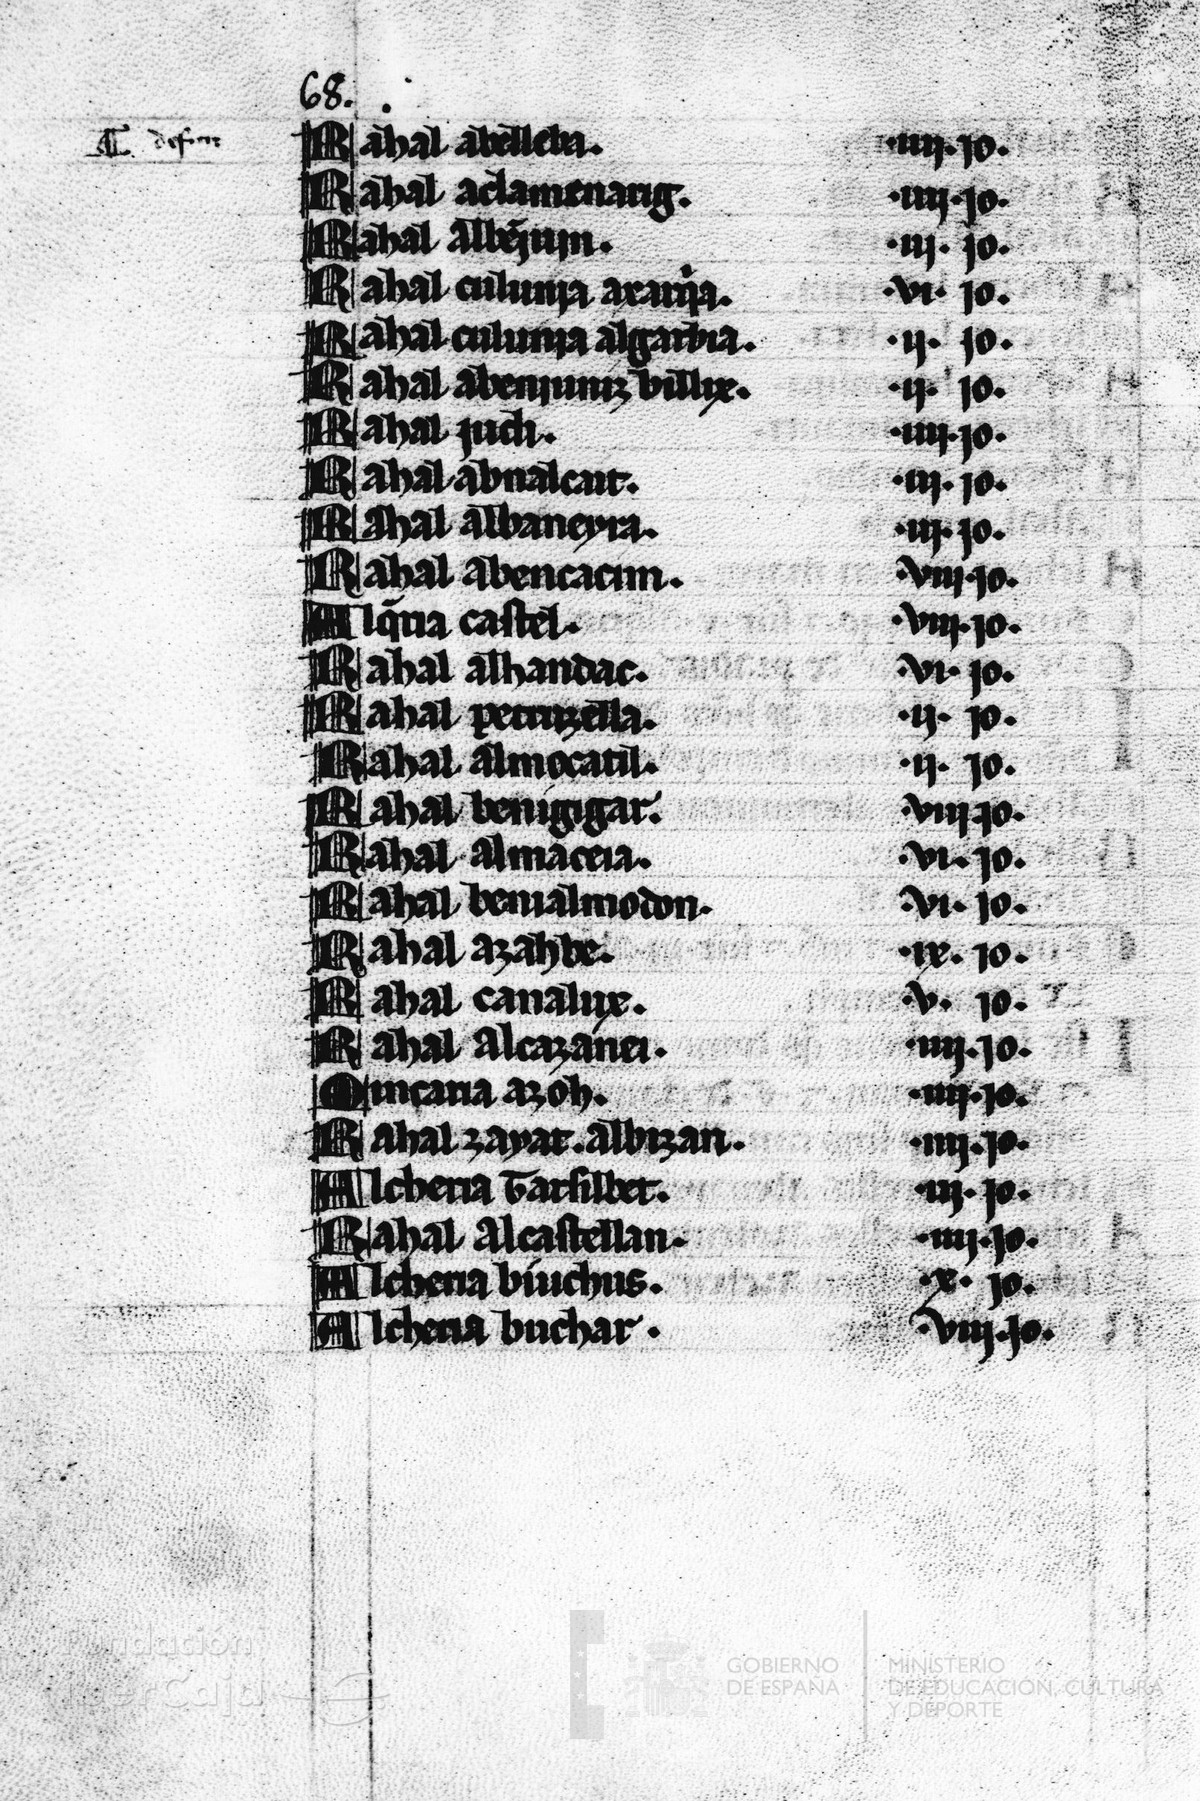 68.
Rahal abelleba. ·iiij·jo.
Rahal aclamenarig. ·iiij·jo.
Rahal Albẽjum. ·iij· jo.
Rahal culunia axarq̃ia. ·vi· jo.
Rahal culunia algarbia. ·ij· jo.
Rahal abenjuniz billix. ·ij· jo.
Rahal juch. ·iiij·jo.
Rahal abnalcait. ·iij· jo.
Rahal albaneyra. ·iij·jo.
Rahal abencacim. ·viij·jo.
Alq̃ria castel. ·viij·jo.
Rahal alhandac. ·vi· jo.
Rahal petruzella. ·ij· jo.
Rahal almocatil. ·ij· jo.
Rahal benigigar. ·viij·jo.
Rahal almaceia. ·vi· jo.
Rahal benialmodon. ·vi· jo.
Rahal azahbe. ·ix· jo.
Rahal canalux. ·v· jo.
Rahal Alcazanei. ·iiij·jo.
Qinçaria azoh. ·iiij·jo.
Rahal zayat.albizan. ·iiij·jo.
Alcheria Tarsilbet. ·iij· jo.
Rahal Alcastellan. ·iiij·jo.
Alcheria biuchus. ·x· jo.
Alcheria buchar. ·viij·jo.
Fundación
iberCaja
GOBIERNO
DE ESPAÑA
MINISTERIO
DE EDUCACIÓN, CULTURA
Y DEPORTE